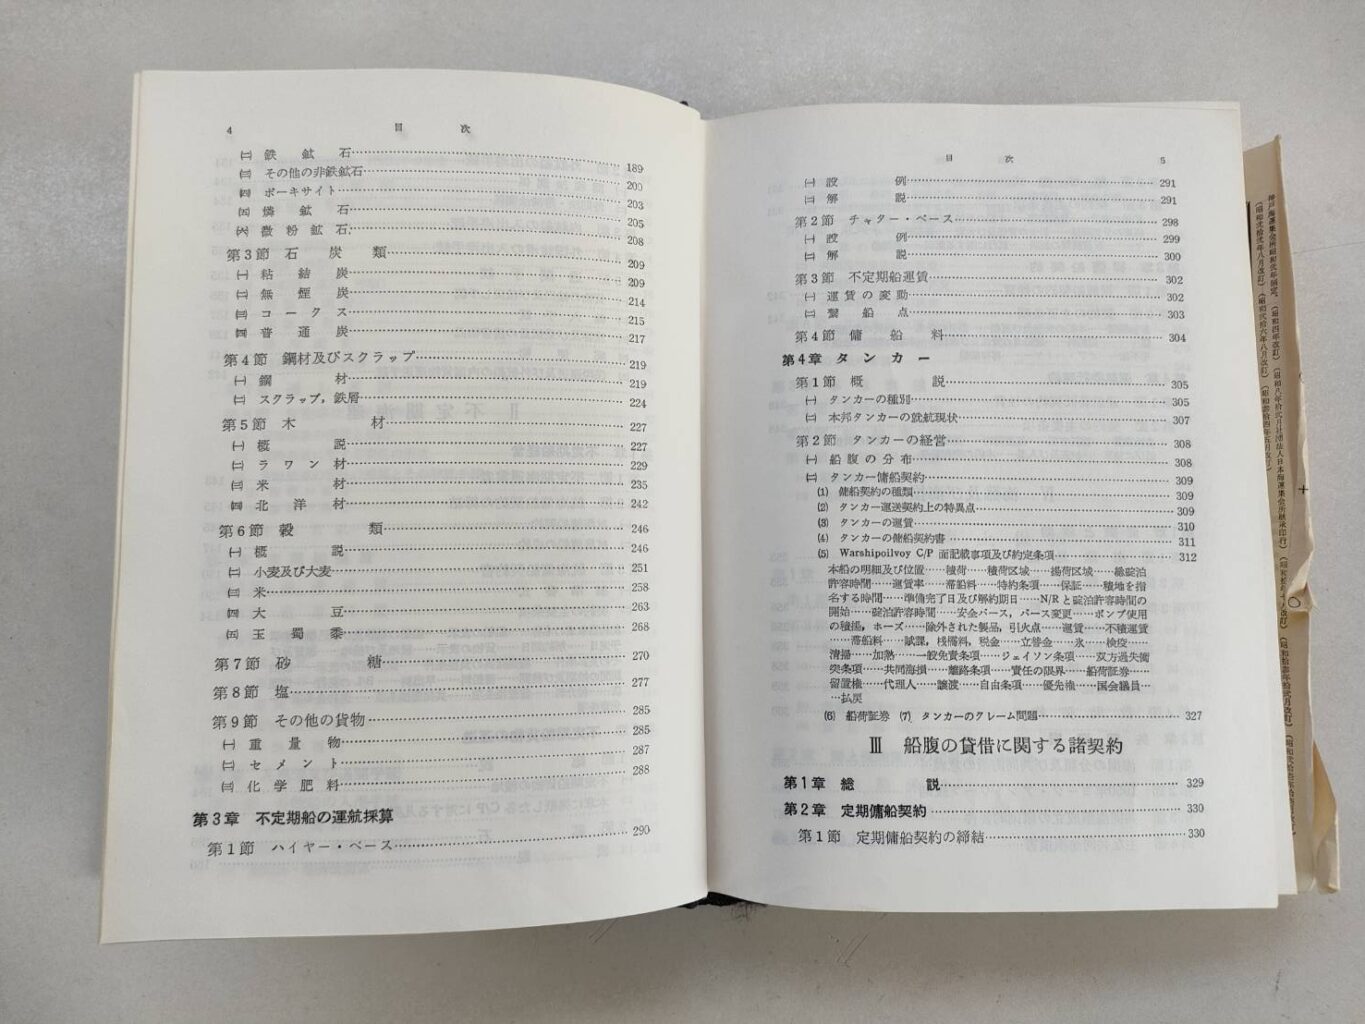 4　目次
㈡ 鉄鉱石……189
㈢ その他の非鉄鉱石……200
㈣ ボーキサイト……203
㈤ 燐鉱石……205
㈥ 微粉鉱石……208
第3節 石炭類……209
㈠ 粘結炭……209
㈡ 無煙炭……214
㈢ コークス……215
㈣ 普通炭……217
第4節 鋼材及びスクラップ……219
㈠ 鋼材……219
㈡ スクラップ，鉄屑……224
第5節 木材……227
㈠ 概説……227
㈡ ラワン材……229
㈢ 米材……235
㈣ 北洋材……242
第6節 穀類……246
㈠ 概説……246
㈡ 小麦及び大麦……251
㈢ 米……258
㈣ 大豆……263
㈤ 玉蜀黍……268
第7節 砂糖……270
第8節 塩……277
第9節 その他の貨物……285
㈠ 重量物……285
㈡ セメント……287
㈢ 化学肥料……288
第3章 不定期船の運航採算
第1節 ハイヤー・ベース……290
目次　5
㈠ 設例……291
㈡ 解説……291
第2節 チャター・ベース……298
㈠ 設例……299
㈡ 解説……300
第3節 不定期船運賃……302
㈠ 運賃の変動……302
㈡ 繋船点……303
第4節 傭船料……304
第4章 タンカー
第1節 概説……305
㈠ タンカーの種別……305
㈡ 本邦タンカーの就航現状……307
第2節 タンカーの経営……308
㈠ 船腹の分布……308
㈡ タンカー傭船契約……309
(1) 傭船契約の種類……309
(2) タンカー運送契約上の特異点……309
(3) タンカーの運賃……310
(4) タンカーの傭船契約書……311
(5) Warshipoilvoy C/P 面記載事項及び約定条項……312
本船の明細及び位置……積荷……積荷区域……揚荷区域……総碇泊
許容時間……運賃率……滞船料……特約条項……保証……積地を指
名する時間……準備完了日及び解約期日……N/R と碇泊許容時間の
開始……碇泊許容時間……安全バース，バース変更……ポンプ使用
の積揚，ホーズ……除外された製品，引火点……運賃……不積運賃
……滞船料……賦課，桟橋料，税金……立替金……氷……検疫……
清掃……加熱……一般免責条項……ジェイソン条項……双方過失衝
突条項……共同海損……離路条項……責任の限界……船荷証券……
留置権……代理人……譲渡……自由条項……優先権……国会議員…
…払戻
(6) 船荷証券 (7) タンカーのクレーム問題……327
Ⅲ 船腹の貸借に関する諸契約
第1章 総説……329
第2章 定期傭船契約……330
第1節 定期傭船契約の締結……330